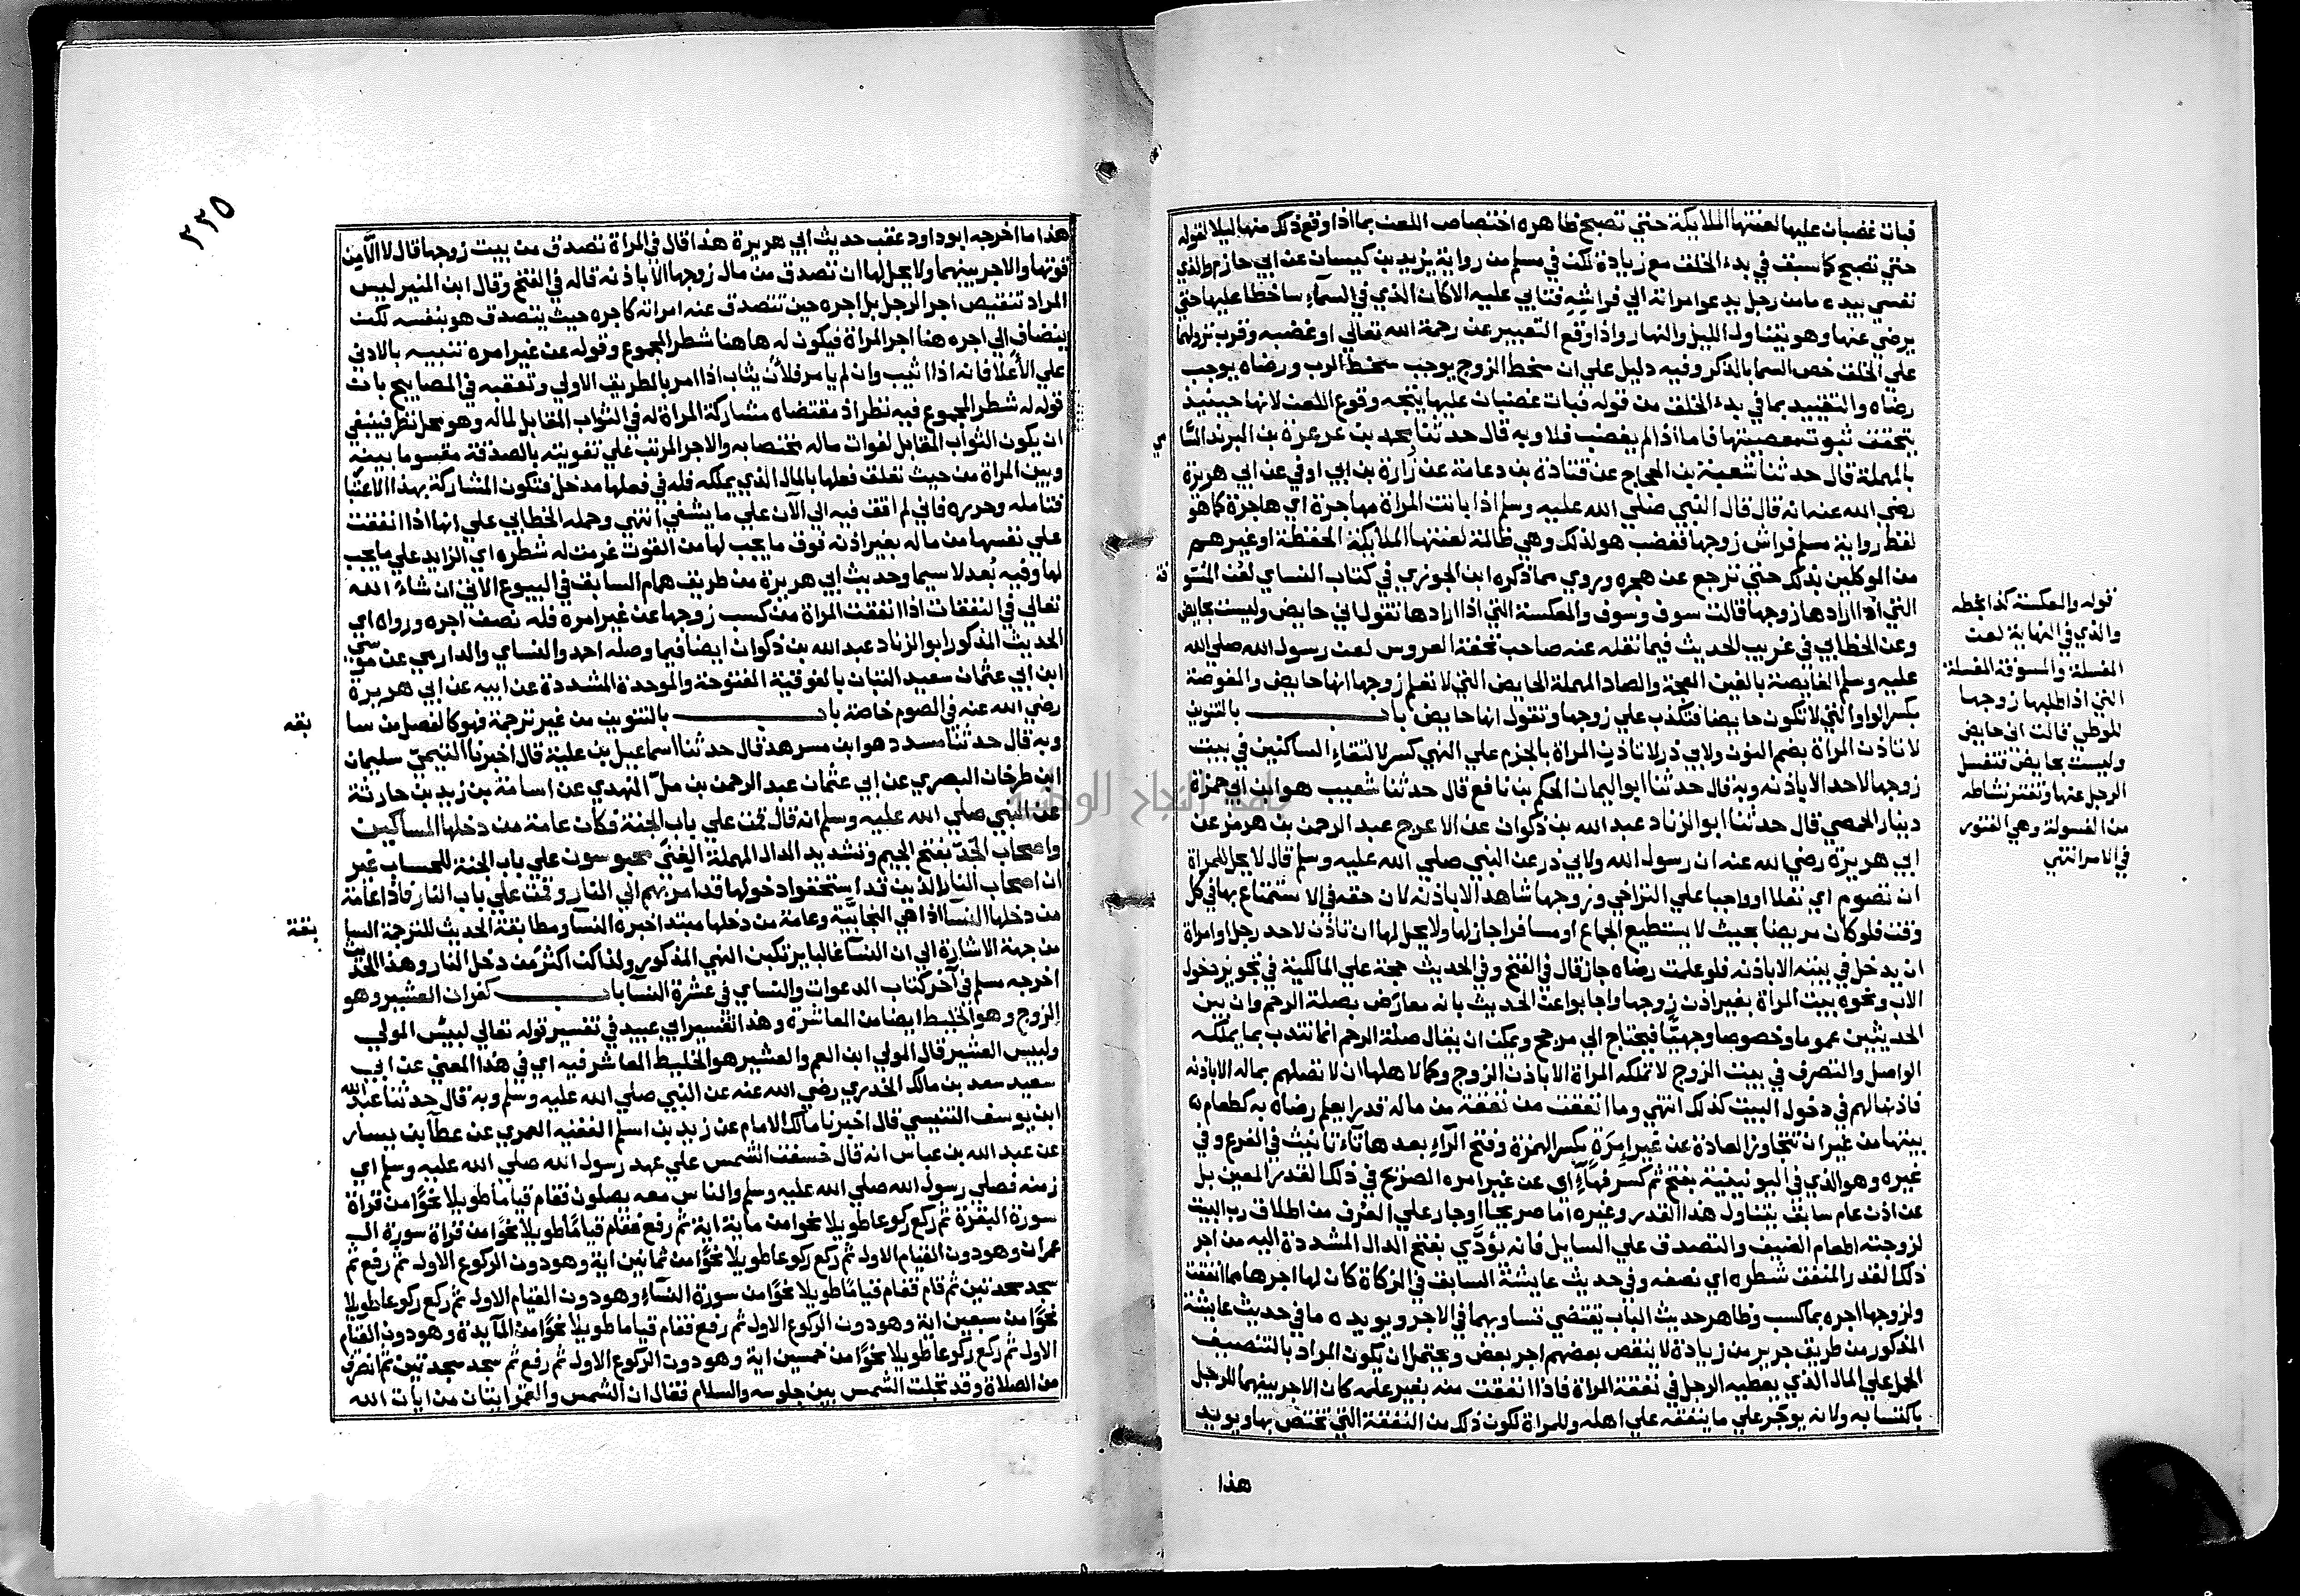 فبات غضبان عليها لعنتها الملايكة حتي تصبح ظاهره اختصاص اللعن بما اذا وقع ذلك منها ليلا لقوله
حتي تصبح كما سبق في بدء الخلف مع زيادة لكن في مسلم من رواية يزيد بن كيسان عن ابي حازم والذي
نفسي بيده ما من رجل يدعو امراته الي فراشه فتابي عليه الا كان الذي في السماء ساخطا عليها حتي
يرضي عنها وهو يتناول الليل والنهار واذا وقع التعبير عن رحمة الله تعالي او غضبه وقرب نزولهما
علي الخلق خص السما بالذكر وفيه دليل علي ان سخط الزوج يوجب سخط الرب ورضاه يوجب
رضاه والتقييد بما في بدء الخلق من قوله فبات غضبان عليها يتجه وقوع اللعن لانها حينيذ
يتحقق ثبوت معصيتها فاما اذا لم يغضب فلا وبه قال حدثنا محمد بن عرعرة بن البرند السا
مي
بالمهملة قال حدثنا شعبة بن الحجاج عن قتادة بن دعامة عن زرارة بن ابي اوفي عن ابي هريرة
رضي الله عنه انه قال قال النبي صلي الله عليه وسلم اذا باتت المراة مهاجرة اي هاجرة كما هو
لفظ رواية مسلم فراش زوجها فغضب هو لذلك وهي ظالمة لعنتها الملايكة الحفظة او غيرهم
من الموكلين بذلك حتي ترجع عن هجره وروي مما ذكره ابن الجوزي في كتاب النساي لعن المسو
فة
التي اذا ارادها زوجها قالت سوف وسوف والمعكسة التي اذا ارادها تقول اني حايض وليست بحايض
وعن الخطابي في غريب الحديث فيما نقله عنه صاحب تحفة العروس لعن رسول الله صلي الله
عليه وسلم الغايصة بالغين المعجمة والصاد المهملة الحايض التي لا تعلم زوجها انها حايض والمغوصة
بكسر الواو التي لا تكون حايضا فتكذب علي زوجها وتقول انها حايض باب بالتنوين
لا تاذن المراة بضم النون ولابي ذر لا تاذن المراة بالجزم علي النهي كسر لالتقاء الساكنين في بيت
زوجها لاحد الا باذنه وبه قال حدثنا ابو اليمان الحكم بن نافع قال حدثنا شعيب هو ابن ابي حمزة
دينار الحمصي قال حدثنا ابو الزناد عبد الله بن ذكوان عن الاعرج عبد الرحمن بن هرمز عن
ابي هريرة رضي الله عنه ان رسول الله ولابي ذر عن النبي صلي الله عليه وسلم قال لا يحل للمراة
ان تصوم اي نفلا او واجبا علي التراخي وزوجها شاهد الا باذنه لان حقه في الاستمتاع بها في كل
وقت فلو كان مريضا بحيث لا يستطيع الجماع او مسافرا جاز لها ولا يحل لها ان تاذن لاحد رجل او امراة
ان يدخل في بيته الا باذنه فلو علمت رضاه جاز قال في الفتح وفي الحديث حجة علي المالكية في تجويز دخول
الاب ونحوه بيت المراة بغير اذن زوجها واجابوا عن الحديث بانه معارض بصلة الرحم وان بين
الحديثين عموما وخصوصا وجهيا فيحتاج الي مرجح ويمكن ان يقال صلة الرحم انما تندب بما يملكه
الواصل والتصرف في بيت الزوج لا تملكه المراة الا باذن الزوج وكما لاهلها ان لا تصلهم بماله الا باذنه
فاذنها لهم في دخول البيت كذلك انتهي وما انفقت من نفقة من ماله قدرا يعلم رضاه به كطعام
بيتها من غير ان تتجاوز العادة عن غير امرة بكسر الهمزة وفتح الراء بعدها تاء تانيث في الفرع وفي
غيره وهو الذي في اليونينية بفتح ثم كسر فهاء اي عن غير امره الصريح في ذلك القدر المعين بل
عن اذن عام سابق يتناول هذا القدر وغيره اما صريحا او جار علي العرف من اطلاق رب البيت
لزوجته اطعام الضيف والتصدق علي السايل فانه يؤدي بفتح الدال المشددة اليه من اجر
ذلك القدر المنفق شطره اي نصفه وفي حديث عايشة السابق في الزكاة كان لها اجرها بما انفقت
ولزوجها اجره بما كسب وظاهر حديث الباب يقتضي تساويهما في الاجر ويويده ما في حديث عايشة
المذكور من طريق جرير من زيادة لا ينقص بعضهم اجر بعض ويحتمل ان يكون المراد بالتنصيف
الحمل علي المال الذي يعطيه الرجل في نفقة المراة فاذا انفقت منه بغير علمه كان الاجر بينهما للرجل
باكتسابه ولانه يوجر علي ما ينفقه علي اهله وللمراة لكون ذلك من النفقة التي تختص بها ويويد
هذا
قوله والمعكسة كذا بخطه
والذي في النهاية لعن
المفسلة والمسوفة المفسلة
التي اذا طلبها زوجها
للوطي قالت اني حايض
وليست بحايض فتفسل
الرجل عنها وتفتر نشاطه
من الفسولة وهي الفتور
في الامر انتهي
٢٢٥
هذا ما اخرجه ابو داود عقب حديث ابي هريرة هذا قال في المراة تصدق من بيت زوجها قال لا الا من
قوتها والاجر بينهما ولا يحل لها ان تصدق من مال زوجها الا باذنه قاله في الفتح وقال ابن المنير ليس
المراد تنقيص اجر الرجل بل اجره حين تتصدق عنه امراته كاجره حيث يتصدق هو بنفسه لكن
ينضاف الي اجره هنا اجر المراة فيكون له هاهنا شطر المجموع وقوله عن غير امره تنبيه بالادني
علي الاعلا فانه اذا اثيب وان لم يامر فلان يثاب اذا امر بالطريق الاولي وتعقبه في المصابيح بان
قوله له شطر المجموع فيه نظر اذ مقتضاه مشاركة المراة له في الثواب المقابل لماله وهو محل نظر فينبغي
ان يكون الثواب المقابل لفوات ماله مختصا به والاجر المرتب علي تفويته بالصدقة مقسوما بينه
وبين المراة من حيث تعلق فعلها بالمال الذي يملكه فله في فعلها مدخل فتكون المشاركة بهذا الاعتبا
فتامله وحرره فاني لم اقف فيه الي الآن علي ما يشفي انتهي وحمله الخطابي علي انها اذا انفقت
علي نفسها من ماله بغير اذنه فوق ما يجب لها من القوت غرمت له شطره اي الزايد علي ما يجب
لها وفيه بُعد لا سيما وحديث ابي هريرة من طريق همام السابق في البيوع الاتي ان شاء الله
تعالي في النفقات اذا انفقت المراة من كسب زوجها عن غير امره فله نصف اجره ورواه اي
الحديث المذكور ابو الزناد عبد الله بن ذكوان ايضا فيما وصله احمد والنساي والدارمي عن موسي
ابن ابي عثمان سعيد التبان بالفوقية المفتوحة والموحدة المشددة عن ابيه عن ابي هريرة
رضي الله عنه في الصوم خاصة باب بالتنوين من غير ترجمة فهو كالفصل من سا
بقه
وبه قال حدثنا مسدد هو ابن مسرهد قال حدثنا اسماعيل بن علية قال اخبرنا التيمي سليمان
ابن طرخان البصري عن ابي عثمان عبد الرحمن بن ملّ النهدي عن اسامة بن زيد بن حارثة
عن النبي صلي الله عليه وسلم انه قال قمت علي باب الجنة فكان عامة من دخلها المساكين
واصحاب الجد بفتح الجيم وتشديد الدال المهملة الغني محبوسون علي باب الجنة للحساب غير
ان اصحاب النار الذين قد استحقوا دخولها قد امر بهم الي النار وقمت علي باب النار فاذا عامة
من دخلها النسا اذا هي الفجائية وعامة من دخلها مبتدا خبره النسا ومطابقة الحديث للترجمة السا
بقة
من جهة الاشارة الي ان النسا غالبا يرتكبن النهي المذكور ولذا كن اكثر من دخل النار وهذا الحديث
اخرجه مسلم في آخر كتاب الدعوات والنساي في عشرة النسا باب كفران العشير وهو
الزوج وهو الخليط ايضا من المعاشرة وهذا تفسير ابي عبيد في تفسير قوله تعالي لبيس المولي
ولبيس العشير قال المولي ابن العم والعشير هو الخليط المعاشر فيه اي في هذا المعني عن ابي
سعيد سعد بن مالك الخدري رضي الله عنه عن النبي صلي الله عليه وسلم وبه قال حدثنا عبد الله
ابن يوسف التنيسي قال اخبرنا مالك الامام عن زيد بن اسلم الفقيه العمري عن عطاء بن يسار
عن عبد الله بن عباس انه قال خسفت الشمس علي عهد رسول الله صلي الله عليه وسلم اي
زمنه فصلي رسول الله صلي الله عليه وسلم والناس معه يصلون فقام قياما طويلا نحوًا من قراة
سورة البقرة ثم ركع ركوعا طويلا نحوا من ماية اية ثم رفع فقام قيامًا طويلا نحوًا من قراة سورة ال
عمران وهو دون القيام الاول ثم ركع ركوعا طويلا نحوًا من ثمانين اية وهو دون الركوع الاول ثم رفع ثم
سجد سجدتين ثم قام فقام قيامًا طويلا نحوًا من سورة النساء وهو دون القيام الاول ثم ركع ركوعا طويلا
نحوًا من سبعين اية وهو دون الركوع الاول ثم رفع فقام قياما طويلا نحوًا من المايدة وهو دون القيام
الاول ثم ركع ركوعا طويلا نحوًا من خمسين اية وهو دون الركوع الاول ثم رفع ثم سجد سجدتين ثم انصرف
من الصلاة وقد تجلت الشمس بين جلوسه والسلام فقال ان الشمس والقمر ايتان من ايات الله
جامعة النجاح الوطنية